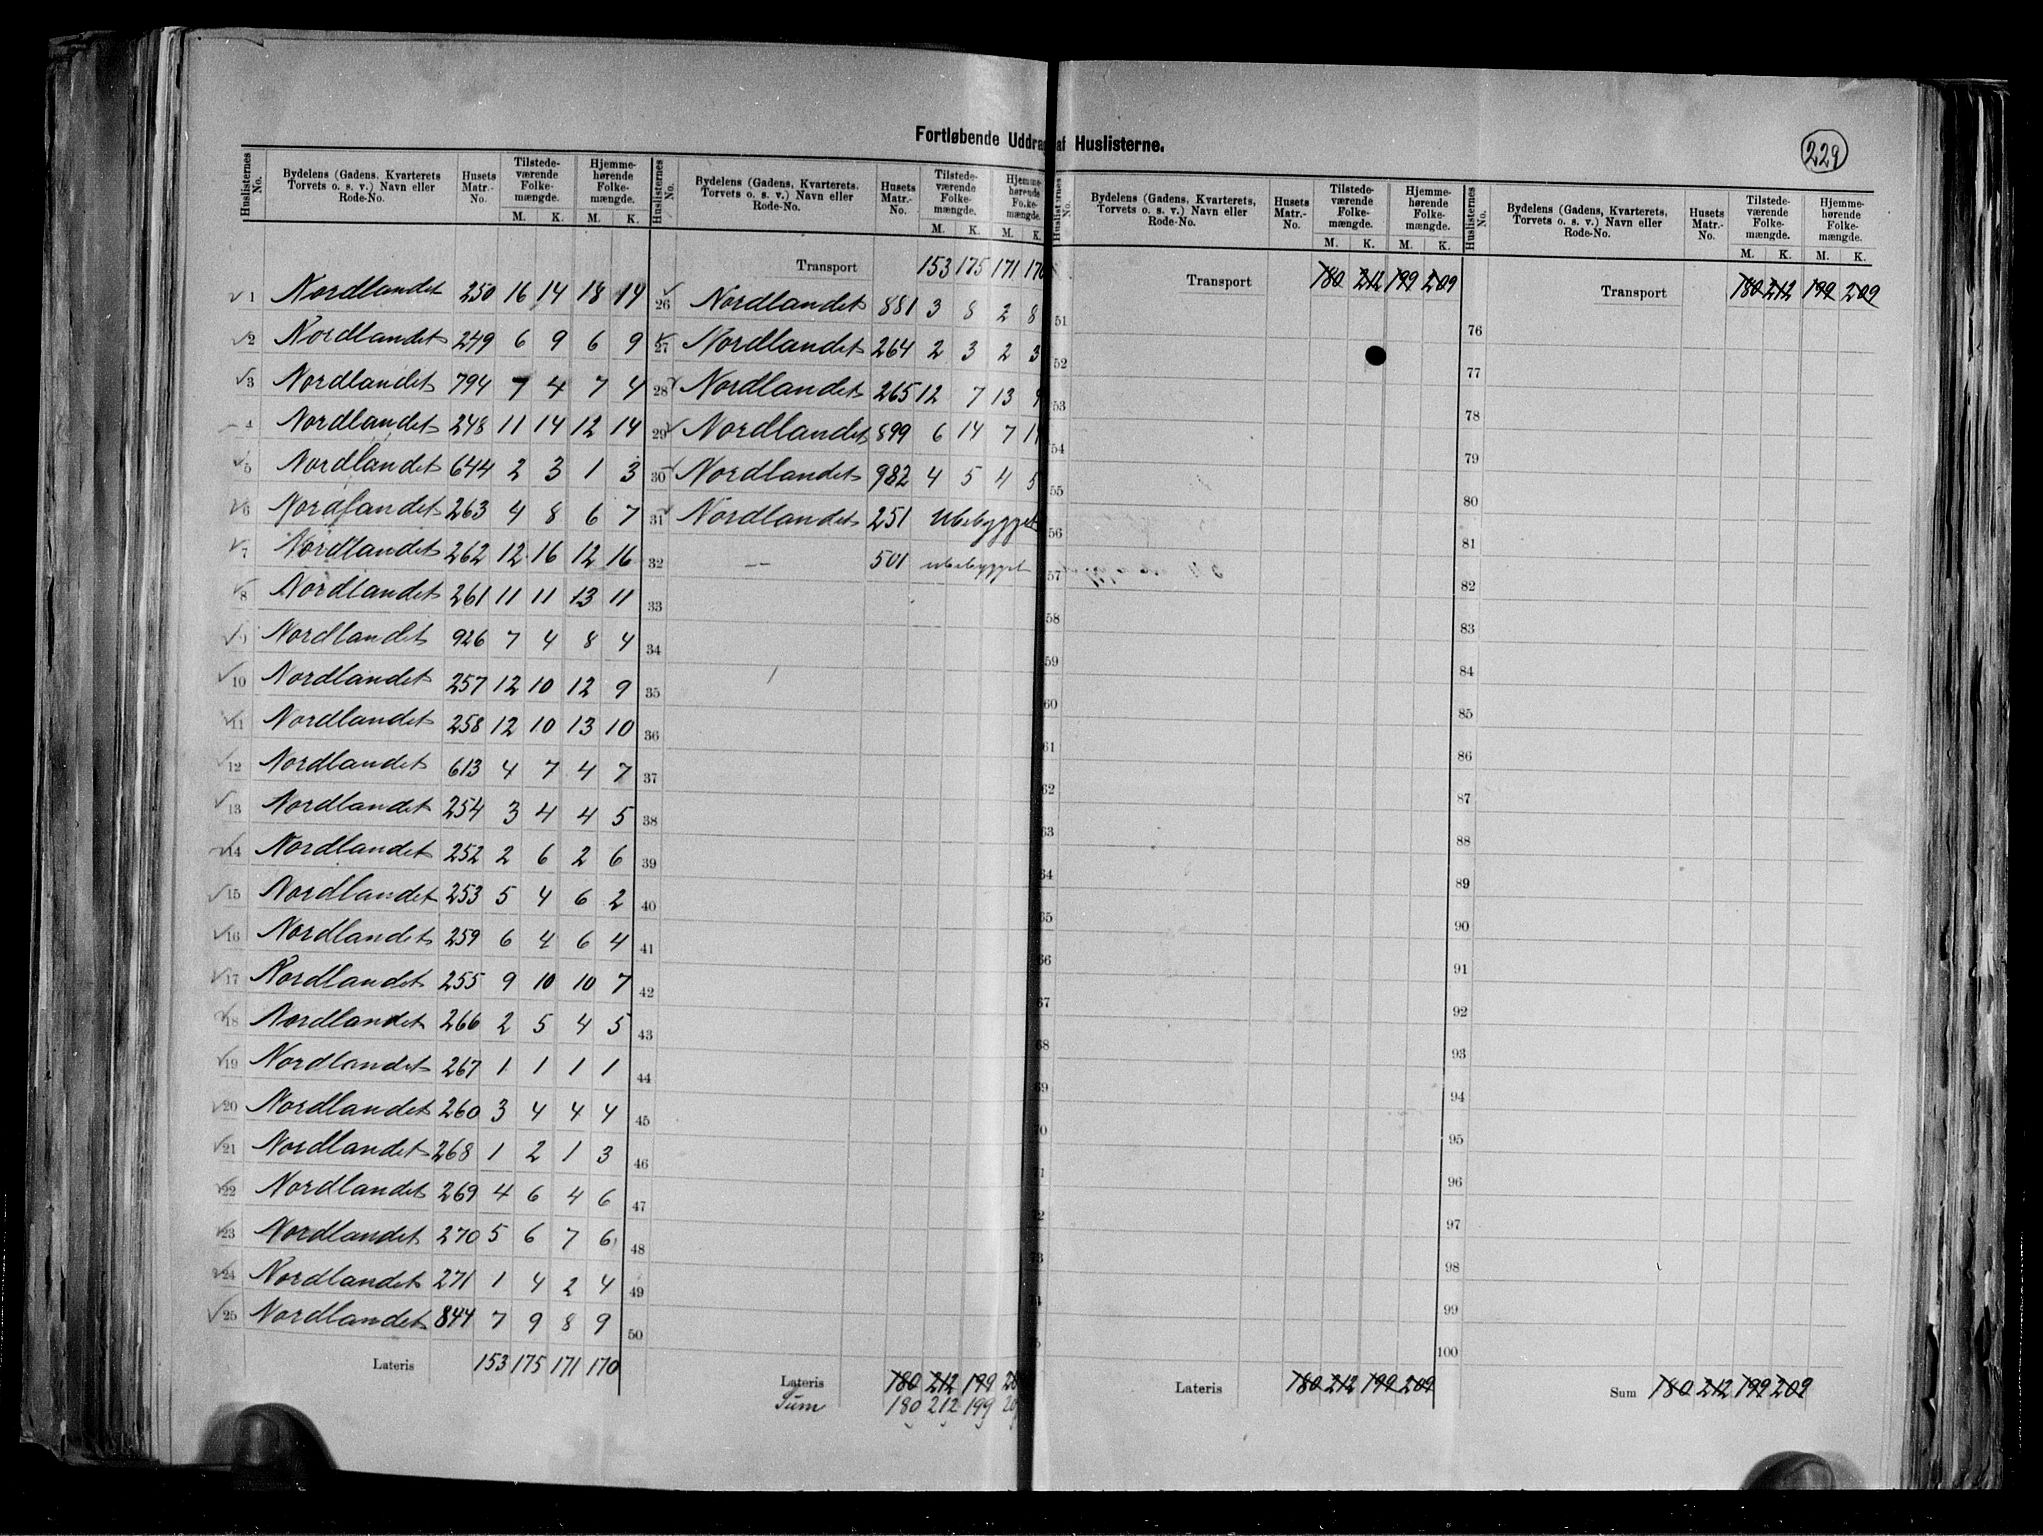 Fortløbende Uddrag af Huslisterne.
229
Huslisternes No. Bydelens (Gadens, Kvarterets Torvets o. s. v.) Navn eller Rode-No. Husets Matr.-No. Tilstede-værende Folke-mængde. M. K. Hjemme-hørende Folke-mængde. M. K.
1 Nordlandet 250 16 14 18 14
2 Nordlandet 249 6 9 6 9
3 Nordlandet 794 7 4 7 4
4 Nordlandet 248 11 14 12 14
5 Nordlandet 644 2 3 1 3
6 Nordlandet 263 4 8 6 7
7 Nordlandet 262 12 16 12 16
8 Nordlandet 261 11 11 13 11
9 Nordlandet 926 7 4 8 4
10 Nordlandet 257 12 10 12 9
11 Nordlandet 258 12 10 13 10
12 Nordlandet 613 4 7 4 7
13 Nordlandet 254 3 4 4 5
14 Nordlandet 252 2 6 2 6
15 Nordlandet 253 5 4 6 2
16 Nordlandet 259 6 4 6 4
17 Nordlandet 255 9 10 10 7
18 Nordlandet 266 2 5 4 5
19 Nordlandet 267 1 1 1 1
20 Nordlandet 260 3 4 4 4
21 Nordlandet 268 1 2 1 3
22 Nordlandet 269 4 6 4 6
23 Nordlandet 270 5 6 7 6
24 Nordlandet 271 1 4 2 4
25 Nordlandet 844 7 9 8 9
Lateris 153 175 171 170
Huslisternes No. Bydelens (Gadens, Kvarterets, Torvets o. s. v.) Navn eller Rode-No. Husets Matr.-No. Tilstede-værende Folke-mængde. M. K. Hjemme-hørende Folke-mængde. M. K.
Transport 153 175 171 170
26 Nordlandet 881 3 8 2 8
27 Nordlandet 264 2 3 2 3
28 Nordlandet 265 12 7 13 9
29 Nordlandet 899 6 14 7 14
30 Nordlandet 982 4 5 4 5
31 Nordlandet 251 Ubebygget
32 — 501 ubebygget
33
34
35
36
37
38
39
40
41
42
43
44
45
46
47
48
49
50
Lateris 180 212 199
Sum 180 212 199
Huslisternes No. Bydelens (Gadens, Kvarterets, Torvets o. s. v.) Navn eller Rode-No. Husets Matr.-No. Tilstede-værende Folke-mængde. M. K. Hjemme-hørende Folke-mængde. M. K.
Transport 180 212 199 209
51
52
53
54
55
56
57
58
59
60
61
62
63
64
65
66
67
68
69
Lateris 180 212 199 209
Huslisternes No. Bydelens (Gadens, Kvarterets, Torvets o. s. v.) Navn eller Rode-No. Husets Matr.-No. Tilstede-værende Folke-mængde. M. K. Hjemme-hørende Folke-mængde. M. K.
Transport 180 212 199 209
76
77
78
79
80
81
82
83
84
85
86
87
88
89
90
91
92
93
94
95
96
97
98
99
100
Sum 180 212 199 209